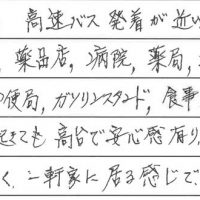 高速バス発着が近い
薬品店, 病院, 薬局,
便局, ガソリンスタンド, 食事
起きても 高台で安心感有り,
く, 一軒家に居る感じで